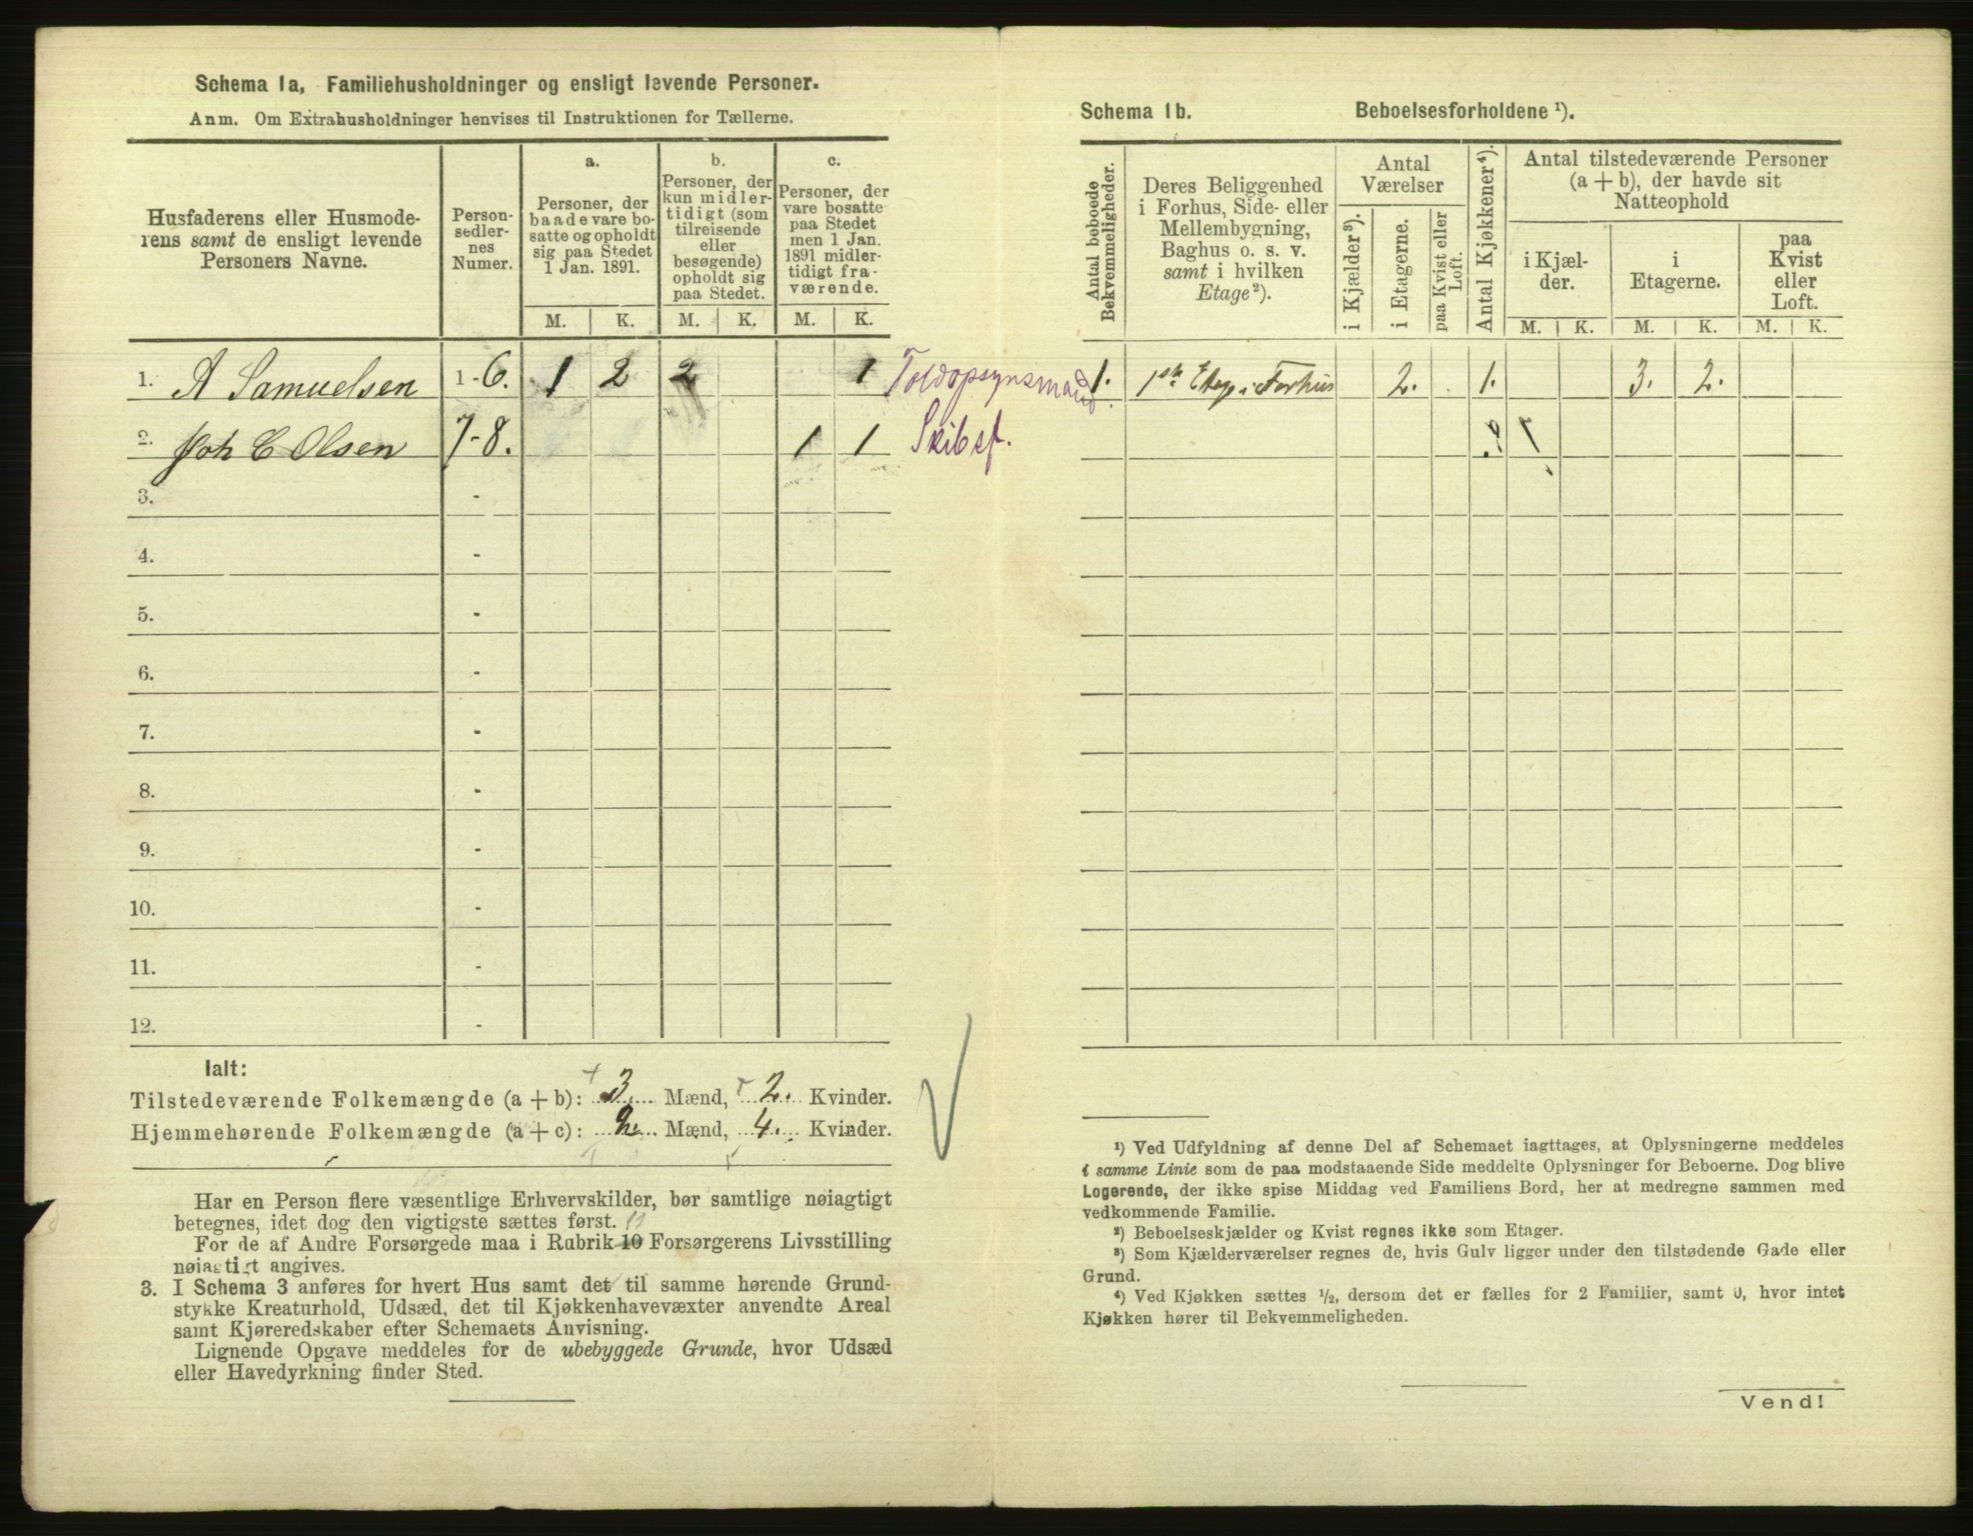 Schema 1a, Familiehusholdninger og ensligt levende Personer.
Anm. Om Extrahusholdninger henvises til Instruktionen for Tællerne.
Husfaderens eller Husmode-
rens samt de ensligt levende
Personers Navne.
Person-
sedler-
nes
Numer.
a.
Personer, der
baade vare bo-
satte og opholdt
sig paa Stedet
1 Jan. 1891.
b.
Personer, der
kun midler-
tidigt (som
tilreisende
eller
besøgende)
opholdt sig
paa Stedet.
c.
Personer, der
vare bosatte
paa Stedet
men 1 Jan.
1891 midler-
tidigt fra-
værende.
M. K. M. K. M. K.
1. A Samuelsen 1-6. 1 2 2 1 Toldopsynsmand
2. Joh C Olsen 7-8. 1 1 Skibsf.
3. -
4. -
5. -
6. -
7. -
8. -
9. -
10. -
11. -
12. -
Ialt:
Tilstedeværende Folkemængde (a + b): 3. Mænd, 2. Kvinder.
Hjemmehørende Folkemængde (a + c): 2. Mænd, 4. Kvinder.
Har en Person flere væsentlige Erhvervskilder, bør samtlige nøiagtigt
betegnes, idet dog den vigtigste sættes først. 11
For de af Andre Forsørgede maa i Rubrik 10 Forsørgerens Livsstilling
nøiagtigt angives.
3. I Schema 3 anføres for hvert Hus samt det til samme hørende Grund-
stykke Kreaturhold, Udsæd, det til Kjøkkenhavevæxter anvendte Areal
samt Kjøreredskaber efter Schemaets Anvisning.
Lignende Opgave meddeles for de ubebyggede Grunde, hvor Udsæd
eller Havedyrkning finder Sted.
Schema 1b. Beboelsesforholdene ¹).
Antal beboede
Bekvemmeligheder.
Deres Beliggenhed
i Forhus, Side- eller
Mellembygning,
Baghus o. s. v.
samt i hvilken
Etage²).
Antal
Værelser
i Kjælder³).
i Etagerne.
paa Kvist eller
Loft.
Antal Kjøkkener⁴).
Antal tilstedeværende Personer
(a + b), der havde sit
Natteophold
i Kjæl-
der.
i
Etagerne.
paa
Kvist
eller
Loft.
M. K. M. K. M. K.
1. 1ste Etage i Forhus 2. 1. 3. 2.
¹) Ved Udfyldning af denne Del af Schemaet iagttages, at Oplysningerne meddeles
i samme Linie som de paa modstaaende Side meddelte Oplysninger for Beboerne. Dog blive
Logerende, der ikke spise Middag ved Familiens Bord, her at medregne sammen med
vedkommende Familie.
²) Beboelseskjælder og Kvist regnes ikke som Etager.
³) Som Kjælderværelser regnes de, hvis Gulv ligger under den tilstødende Gade eller
Grund.
⁴) Ved Kjøkken sættes ½, dersom det er fælles for 2 Familier, samt 0, hvor intet
Kjøkken hører til Bekvemmeligheden.
Vend!